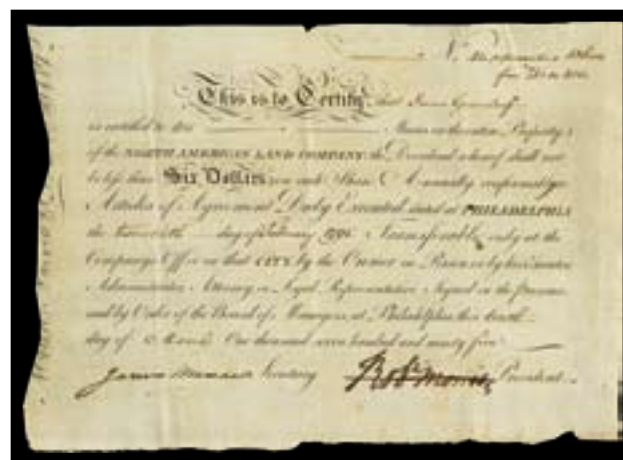 No
This is to Certify, that James
is entitled to ten Shares in the entire Property
of the NORTH AMERICAN LAND COMPANY; the Dividend whereof shall not
be less than Six Dollars on each Share Annually conformably to
Articles of Agreement Duly Executed dated at PHILADELPHIA
the twentieth day of February 1795 Transferable only at the
Company's Office in that CITY by the Owner in Person or by his Executor
Administrator Attorney or Legal Representative Signed in the presence
and by Order of the Board of Managers at Philadelphia this tenth
day of March One thousand seven hundred and ninety five
James Secretary Robt Morris President